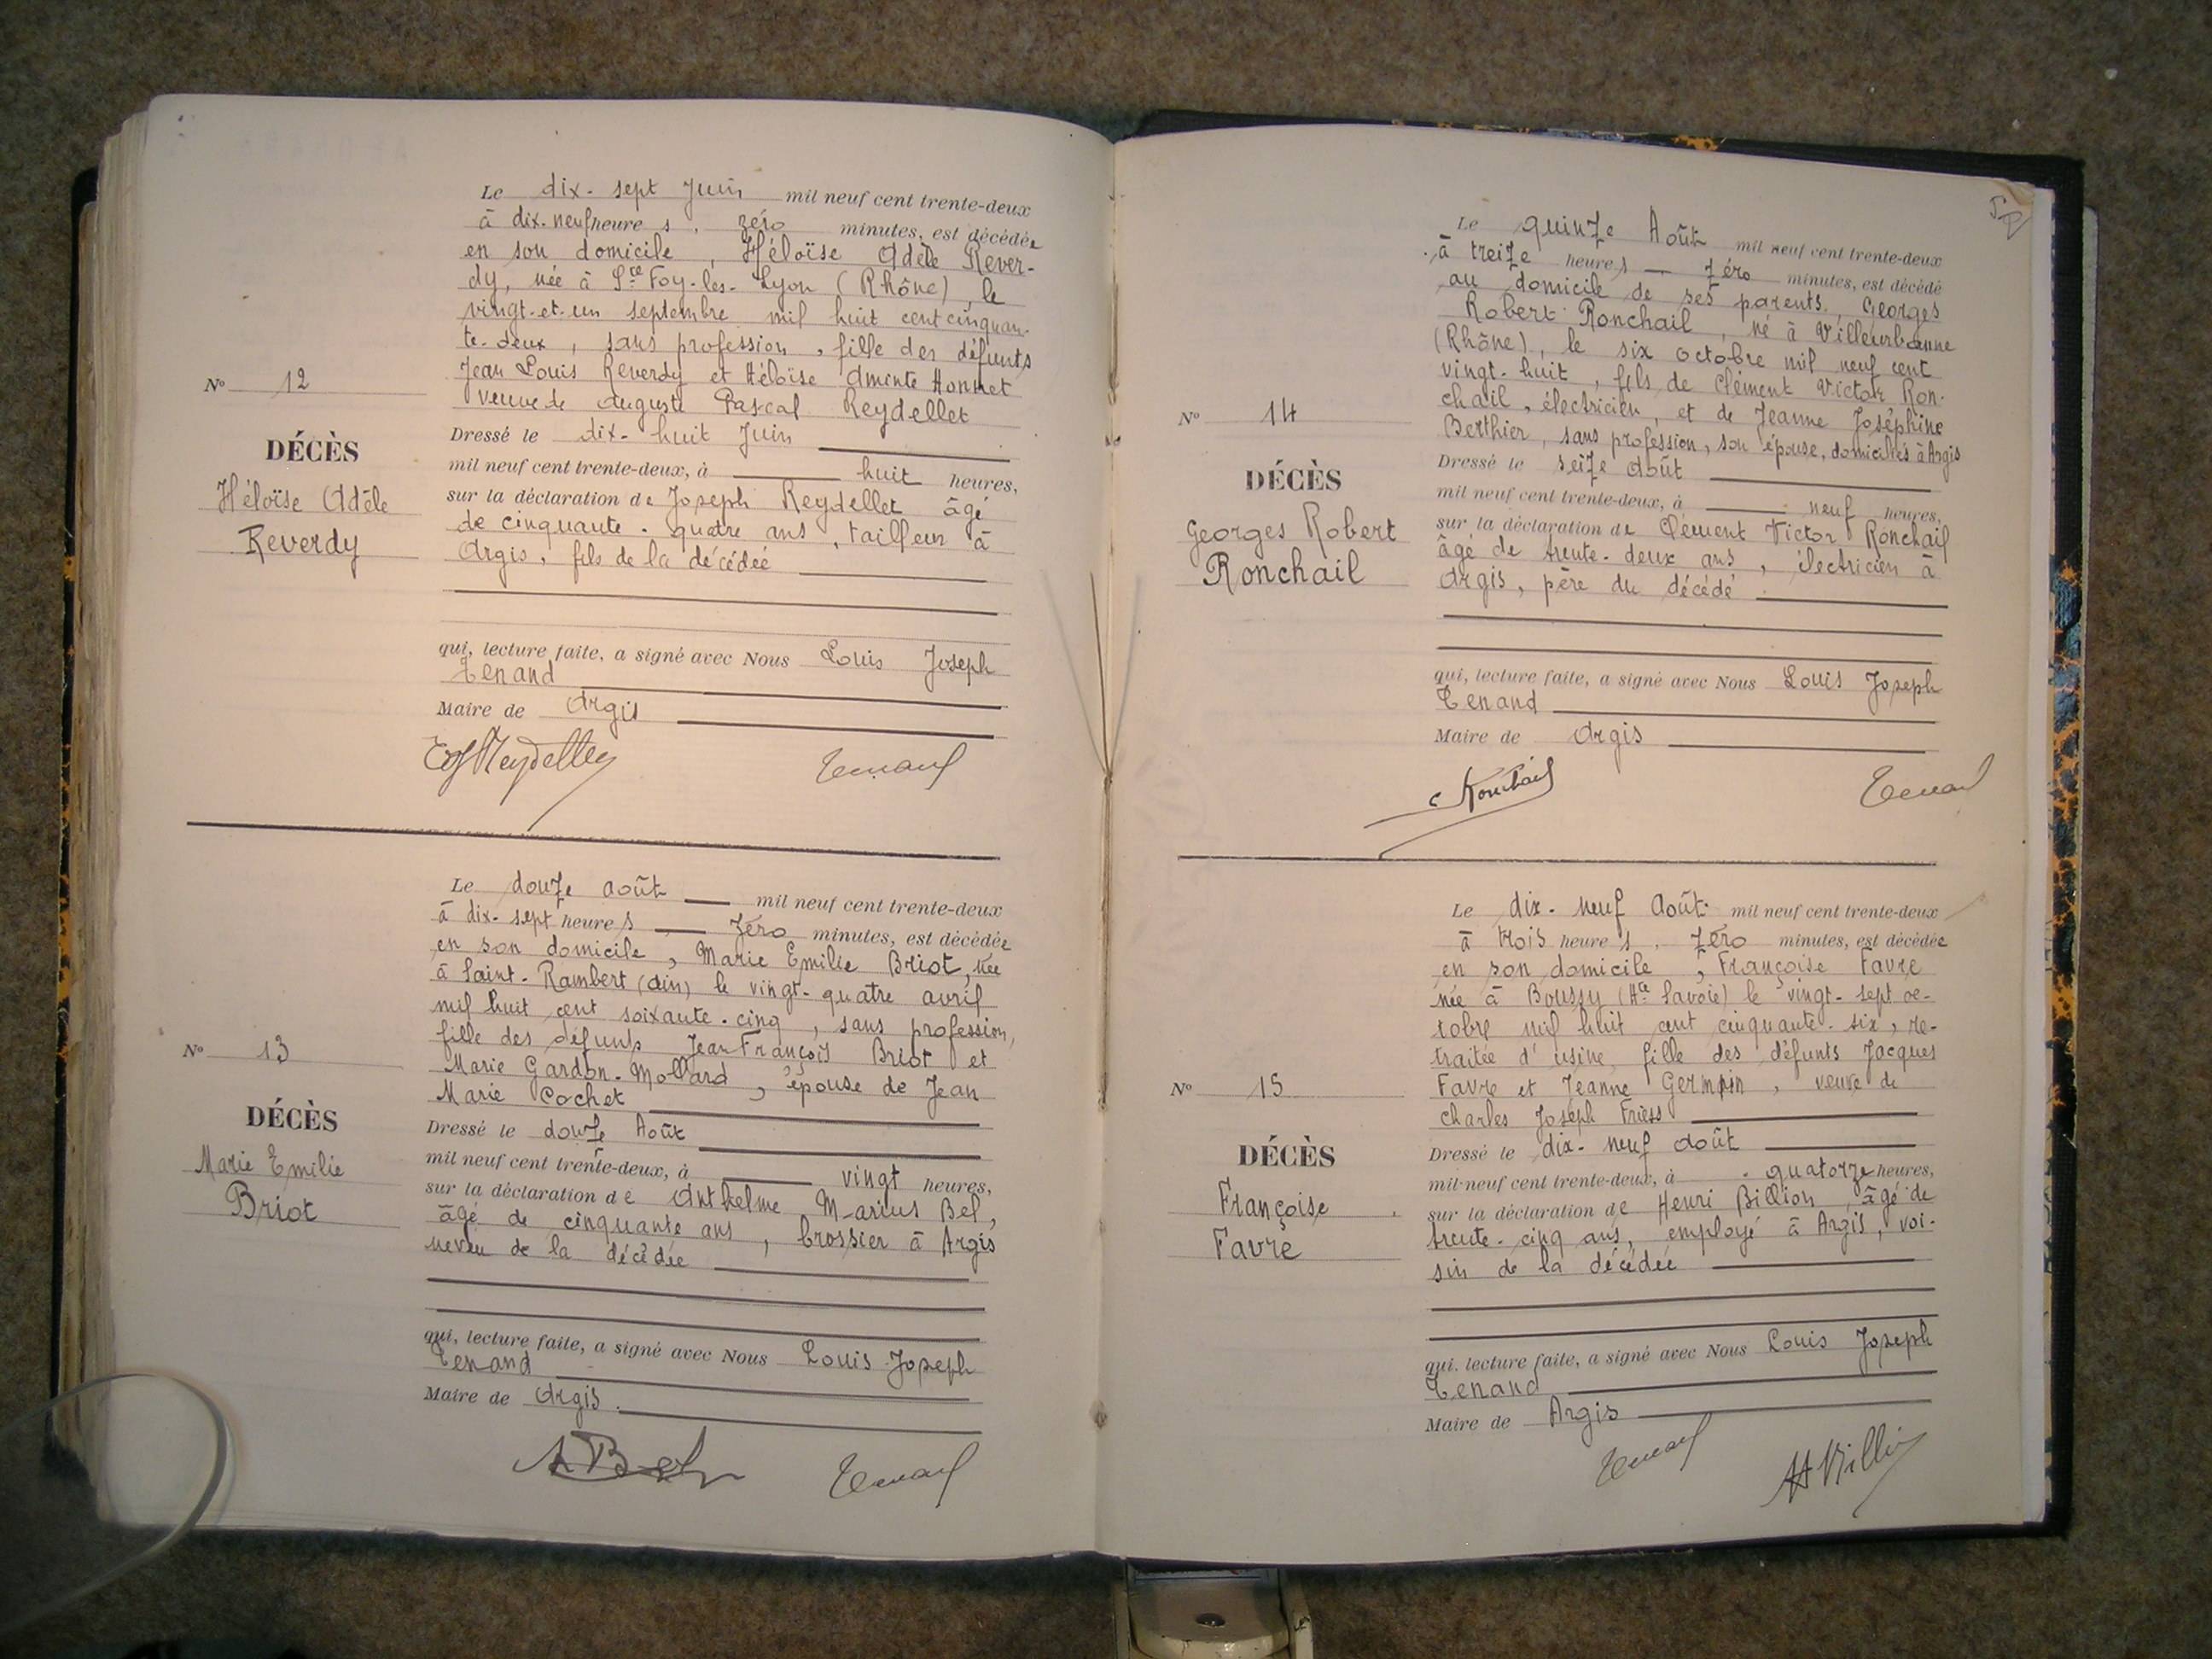 Le dix-sept Juin mil neuf cent trente-deux
à dix-neuf heures, zéro minutes, est décédée
en son domicile, Héloïse Adèle Rever-
dy, née à Ste Foy-lès-Lyon (Rhône), le
vingt-et-un septembre mil huit cent cinquan-
te-deux, sans profession, fille des défunts
Jean Louis Reverdy et Héloïse Aminte Honnet
veuve de Auguste Pascal Reydellet
N° 12
DÉCÈS
Héloïse Adèle
Reverdy
Dressé le dix-huit Juin
mil neuf cent trente-deux, à huit heures,
sur la déclaration de Joseph Reydellet âgé
de cinquante-quatre ans, tailleur à
Argis, fils de la décédée
qui, lecture faite, a signé avec Nous Louis Joseph
Tenand
Maire de Argis
Reydellet Tenand
Le douze août mil neuf cent trente-deux
à dix-sept heures zéro minutes, est décédée
en son domicile, Marie Emilie Briot, née
à Saint-Rambert (Ain) le vingt-quatre avril
mil huit cent soixante-cinq, sans profession,
fille des défunts Jean François Briot et
Marie Gardon-Mollard, épouse de Jean
Marie Cochet
N° 13
DÉCÈS
Marie Emilie
Briot
Dressé le douze Août
mil neuf cent trente-deux, à vingt heures,
sur la déclaration de Anthelme Marius Bel,
âgé de cinquante ans, brossier à Argis
neveu de la décédée
qui, lecture faite, a signé avec Nous Louis Joseph
Tenand
Maire de Argis.
A Bel Tenand
Le quinze Août mil neuf cent trente-deux
à treize heures zéro minutes, est décédé
au domicile de ses parents, Georges
Robert Ronchail, né à Villeurbanne
(Rhône), le six octobre mil neuf cent
vingt-huit, fils de Clément Victor Ron-
chail, électricien, et de Jeanne Joséphine
Berthier, sans profession, son épouse, domiciliés à Argis
N° 14
DÉCÈS
Georges Robert
Ronchail
Dressé le seize août
mil neuf cent trente-deux, à neuf heures,
sur la déclaration de Clément Victor Ronchail
âgé de trente-deux ans, électricien à
Argis, père du décédé
qui, lecture faite, a signé avec Nous Louis Joseph
Tenand
Maire de Argis
C Ronchail Tenand
Le dix-neuf Août mil neuf cent trente-deux
à trois heures, zéro minutes, est décédée
en son domicile, Françoise Favre
née à Boussy (Hte Savoie) le vingt-sept oc-
tobre mil huit cent cinquante-six, re-
traitée d'usine, fille des défunts Jacques
Favre et Jeanne Germain, veuve de
Charles Joseph Friess
N° 15
DÉCÈS
Françoise
Favre
Dressé le dix-neuf août
mil neuf cent trente-deux, à quatorze heures,
sur la déclaration de Henri Billion, âgé de
trente-cinq ans, employé à Argis, voi-
sin de la décédée
qui, lecture faite, a signé avec Nous Louis Joseph
Tenand
Maire de Argis
Tenand